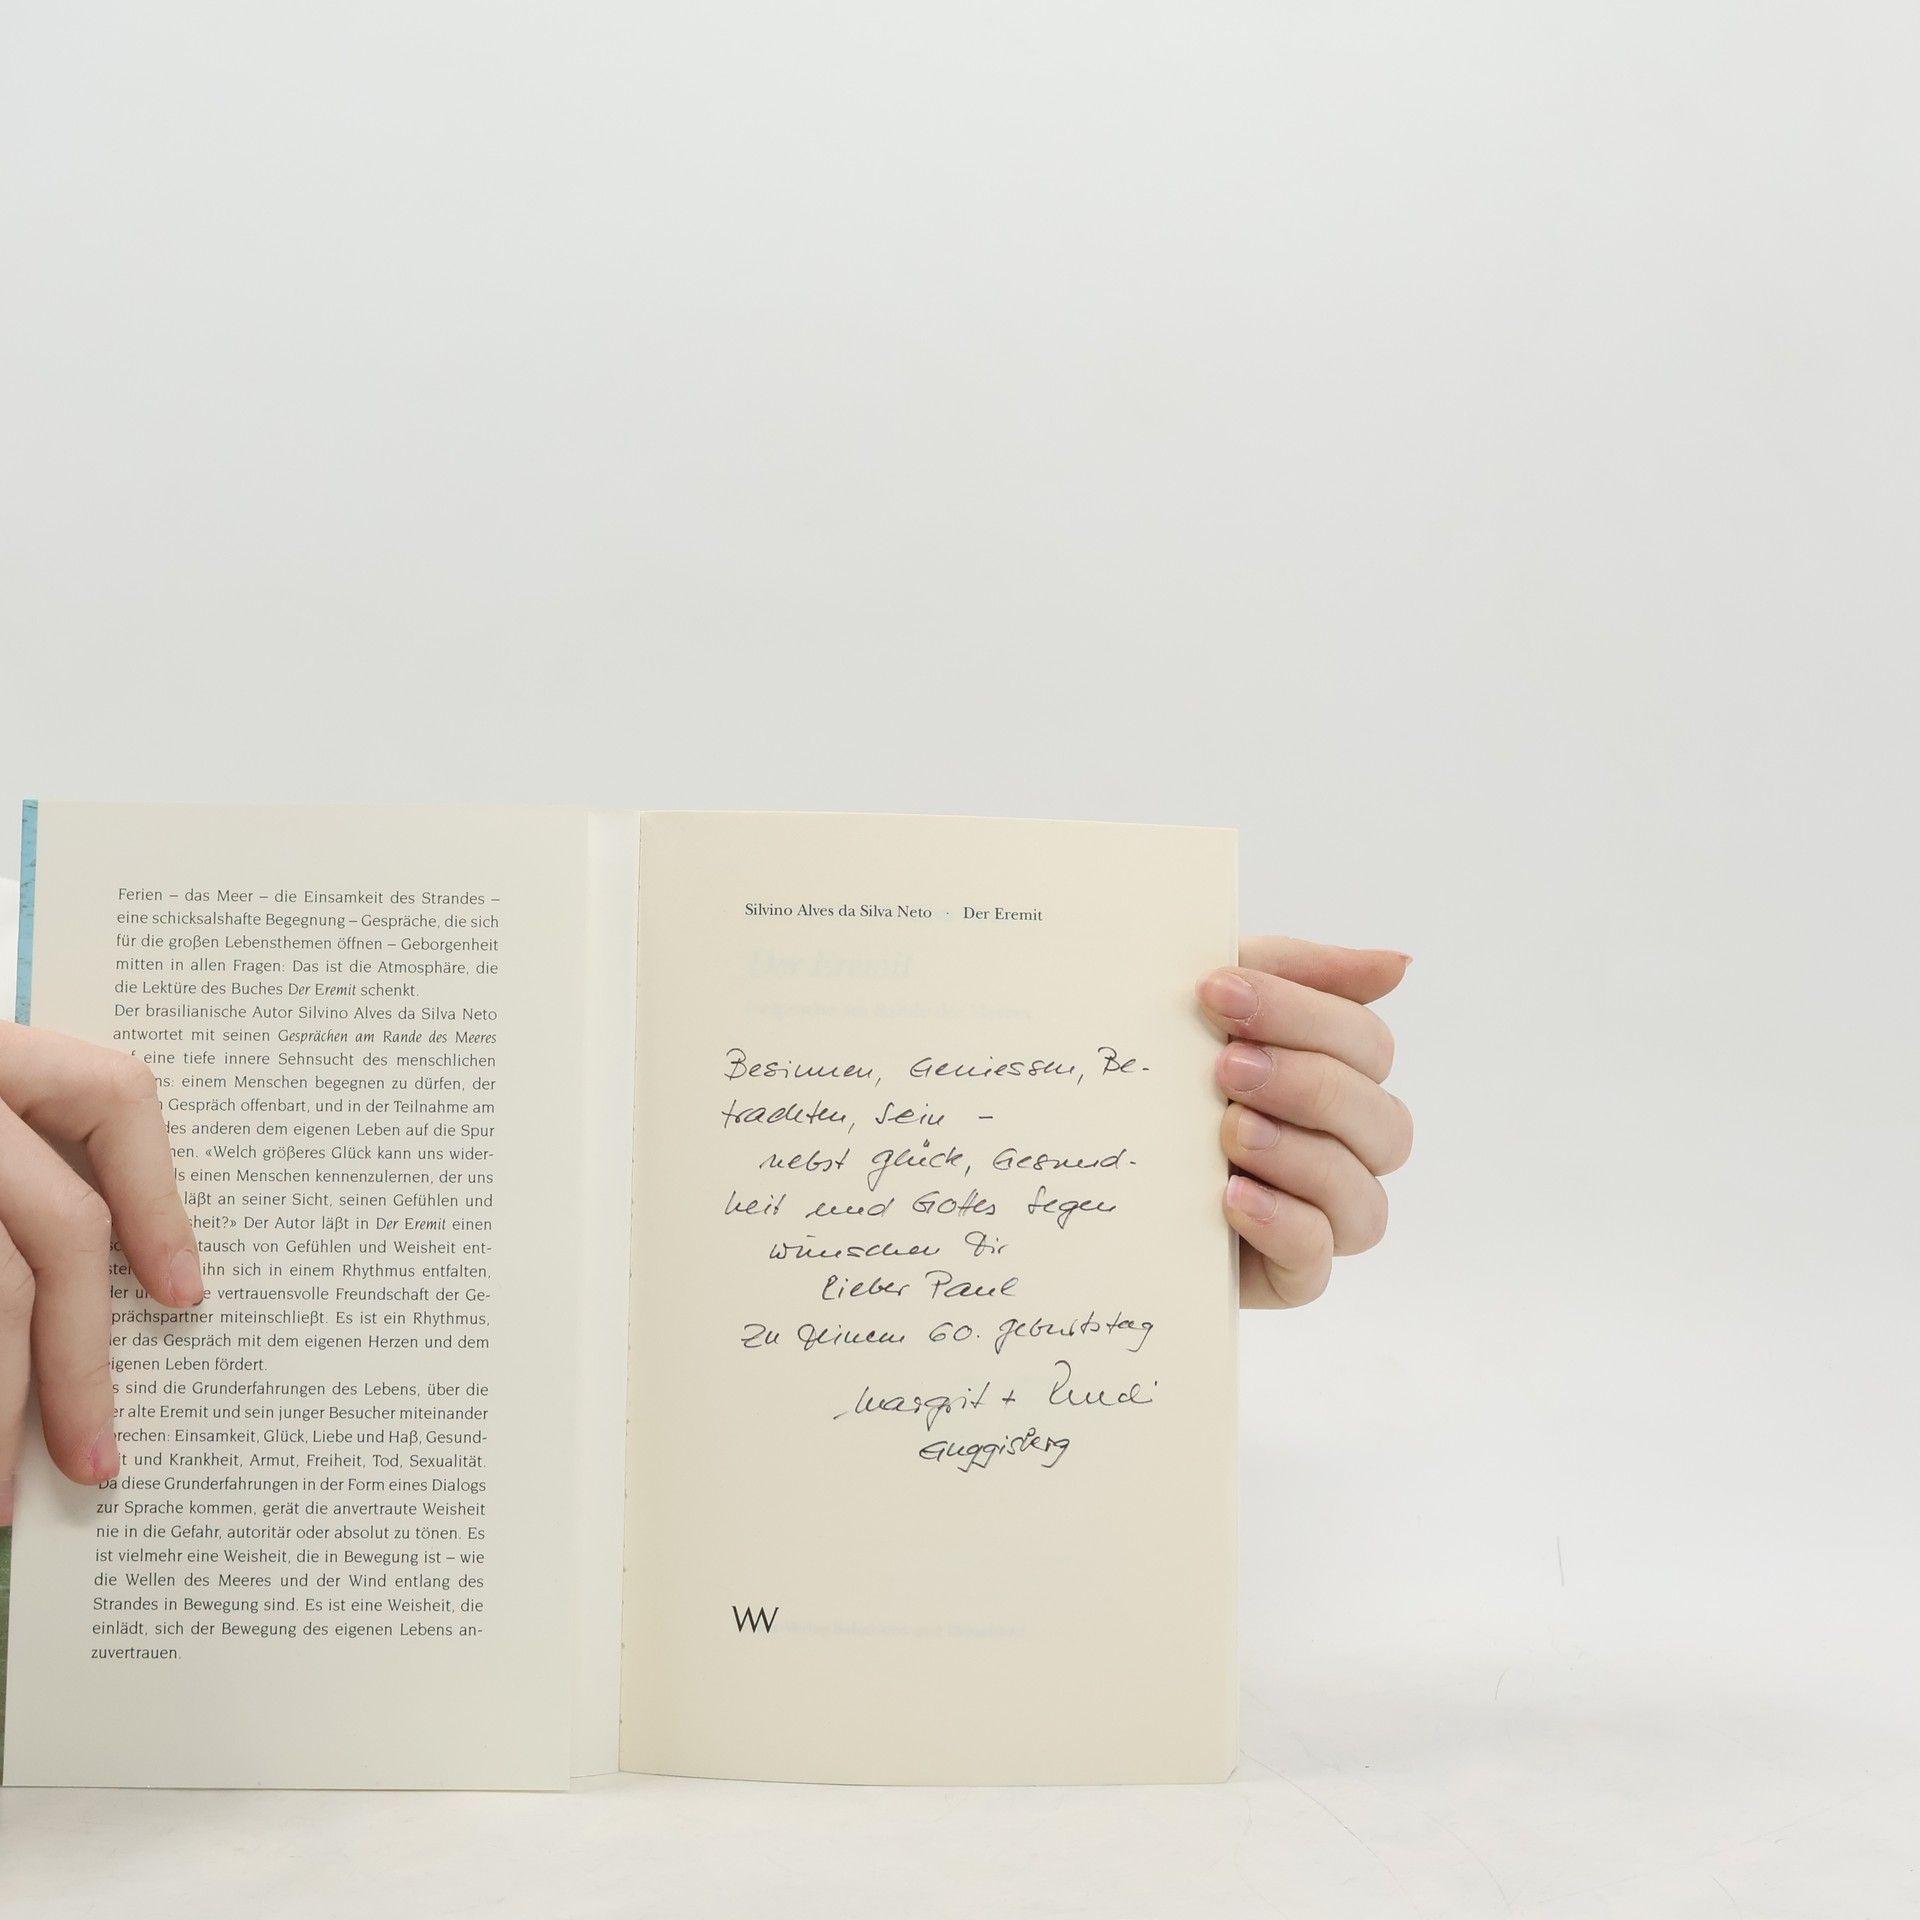 Ferien – das Meer – die Einsamkeit des Strandes –
eine schicksalshafte Begegnung – Gespräche, die sich
für die großen Lebensthemen öffnen – Geborgenheit
mitten in allen Fragen: Das ist die Atmosphäre, die
die Lektüre des Buches Der Eremit schenkt.
Der brasilianische Autor Silvino Alves da Silva Neto
antwortet mit seinen Gesprächen am Rande des Meeres
eine tiefe innere Sehnsucht des menschlichen
ns: einem Menschen begegnen zu dürfen, der
Gespräch offenbart, und in der Teilnahme am
des anderen dem eigenen Leben auf die Spur
men. «Welch größeres Glück kann uns wider-
ls einen Menschen kennenzulernen, der uns
läßt an seiner Sicht, seinen Gefühlen und
sheit?» Der Autor läßt in Der Eremit einen
tausch von Gefühlen und Weisheit ent-
ihn sich in einem Rhythmus entfalten,
der un e vertrauensvolle Freundschaft der Ge-
prächspartner miteinschließt. Es ist ein Rhythmus,
der das Gespräch mit dem eigenen Herzen und dem
eigenen Leben fördert.
s sind die Grunderfahrungen des Lebens, über die
er alte Eremit und sein junger Besucher miteinander
prechen: Einsamkeit, Glück, Liebe und Haß, Gesund-
it und Krankheit, Armut, Freiheit, Tod, Sexualität.
Da diese Grunderfahrungen in der Form eines Dialogs
zur Sprache kommen, gerät die anvertraute Weisheit
nie in die Gefahr, autoritär oder absolut zu tönen. Es
ist vielmehr eine Weisheit, die in Bewegung ist – wie
die Wellen des Meeres und der Wind entlang des
Strandes in Bewegung sind. Es ist eine Weisheit, die
einlädt, sich der Bewegung des eigenen Lebens an-
zuvertrauen.
Silvino Alves da Silva Neto · Der Eremit
Besinnen, Geniessen, Be-
trachten, Sein –
nebst Glück, Gesund-
heit und Gottes Segen
wünschen Dir
Lieber Paul
Zu Deinem 60. Geburtstag
Margrit + Ruedi
Guggisberg
WV